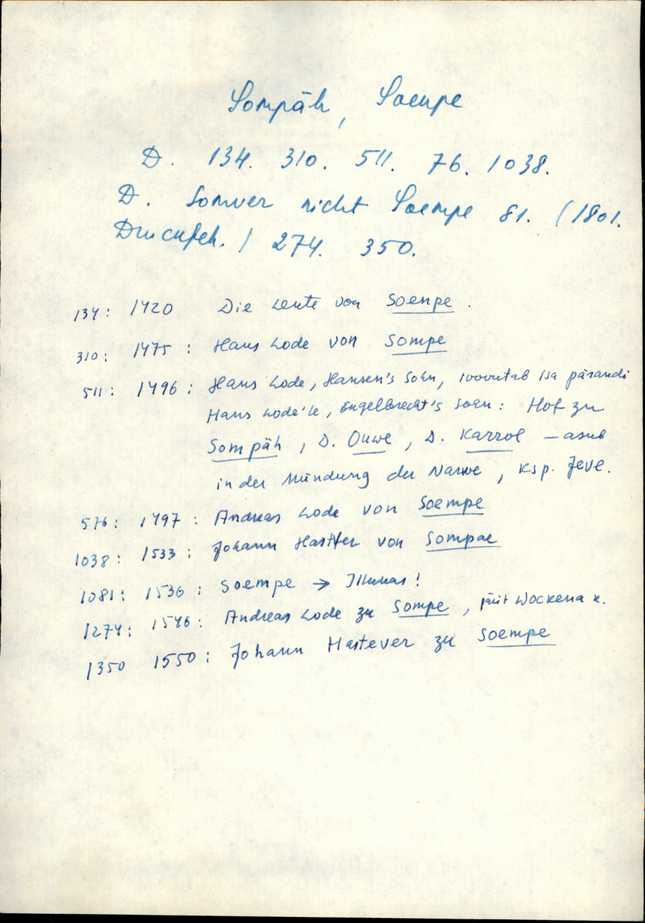 Sompäh, Soempe
D. 134. 310. 511. 76. 1038.
D. Somver nicht Soempe 81. (1801.
Druckfeh.) 274. 350.
134: 1420 Die Leute von Soenpe.
310: 1475: Hans Lode von Sompe
511: 1496: Hans Lode, Hansen's Sohn, loovutab isa pärandi
Hans Lode'le, Engelbrecht's Sohn: Hof zu
Sompäh, D. Ouwe, D. Karrol – asub
in der Mündung der Narwe, Ksp. Jeve.
576: 1497: Andreas Lode von Soempe
1038: 1533: Johann Hastfer von Sompae
1081: 1536: Soempe → Illukas!
1274: 1546: Andreas Lode zu Sompe, Wockena k.
1350 1550: Johann Hastever zu Soempe